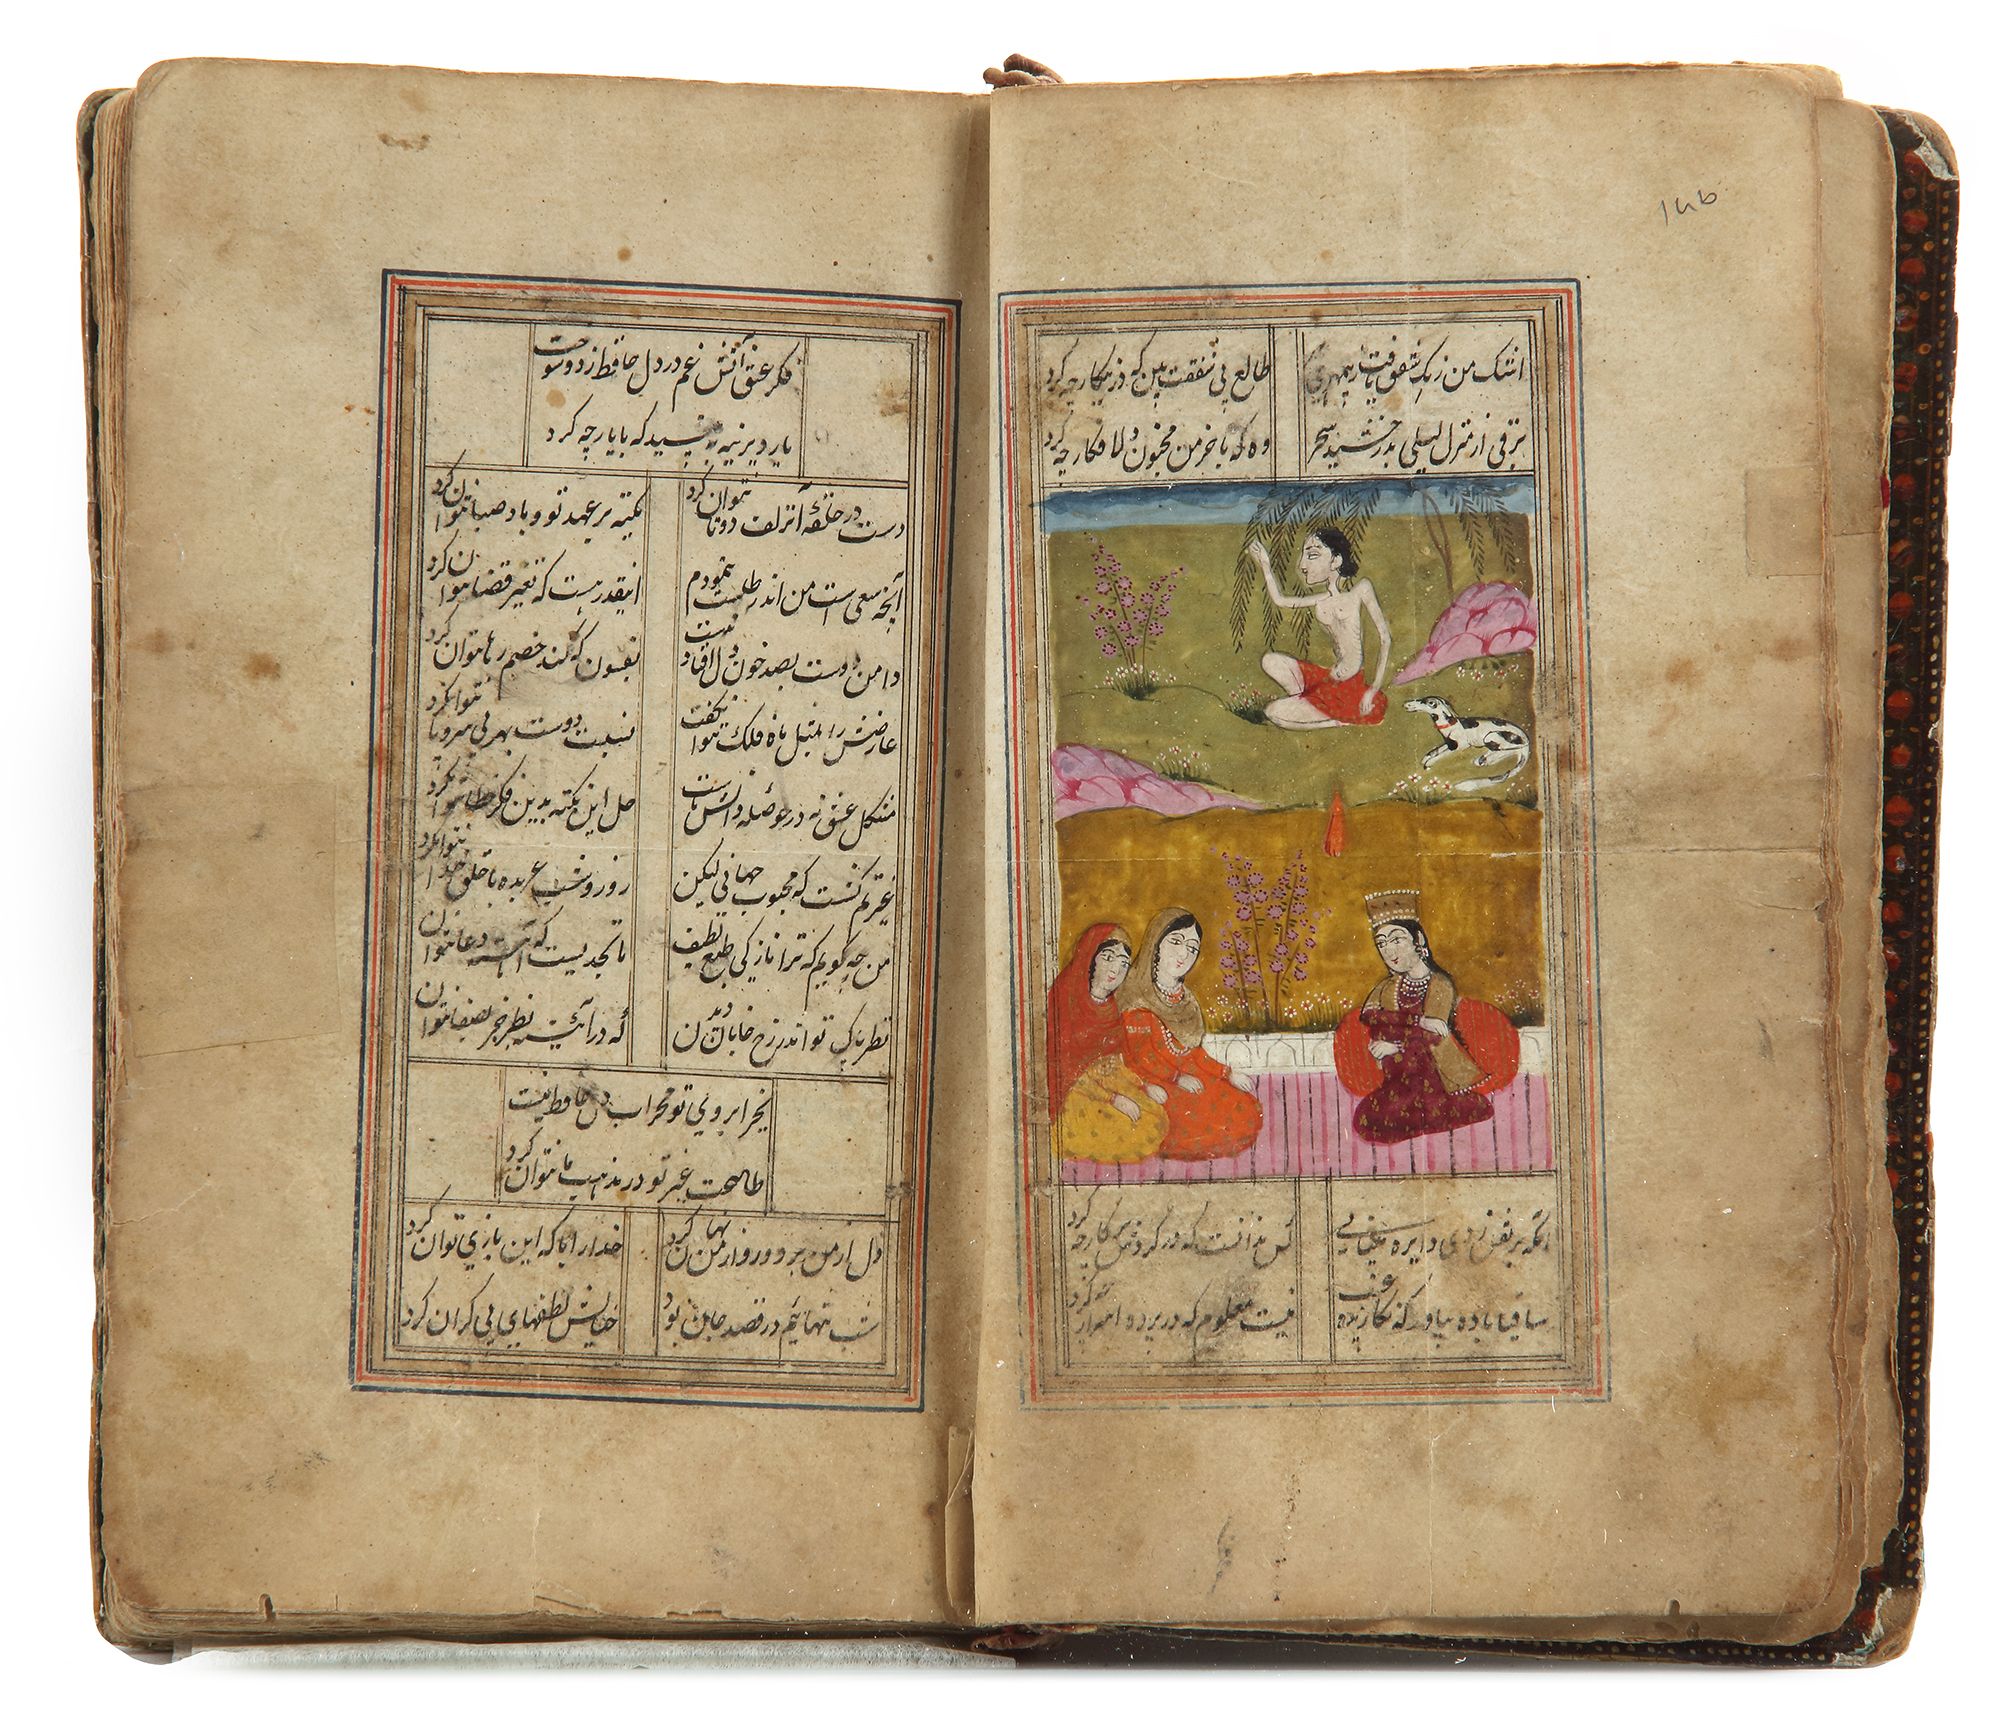 146
اشک من رنگ شفق یافت ز بیمهری
طالع بی شفقت بین که درینکار چه کرد
برقی از منزل لیلی بدرخشید سحر
وه که با خرمن مجنون دلافکار چه کرد
آنکه پر نقش زد ی دایره مینایی
کس ندانست که در گردش پرکار چه کرد
ساقیا باده بیاور که نگارنده غیب
نیست معلوم که در پرده اسرار چه کرد
فکر عشق آتش غم در دل حافظ زد و سوخت
یار دیرینه ببینید که با یار چه کرد
دست در حلقه آنزلف دوتا نتوان کرد
تکیه بر عهد تو و باد صبا نتوان کرد
آنچه سعی است من اندر طلبت بنمودم
اینقدر هست که تغیر قضا نتوان کرد
دامن دوست بصد خون دل افتاد بدست
بفسون که کند خصم رها نتوان کرد
عارضش را بمثل ماه فلک نتوان گفت
نسبت دوست بهر بی سر و پا نتوان کرد
مشکل عشق نه در حوصله دانش ماست
حل این نکته بدین فکر خطا نتوان کرد
غیرتم کشت که محبوب جهانی لیکن
روز و شب عربده با خلق خدا نتوان کرد
من چه گویم که ترا نازکی طبع لطیف
تا بحدیست که آهسته دعا نتوان
نظر پاک تواند رخ جانان دیدن
که در آئینه نظر جز بصفا نتوان
بجز ابروی تو محراب دل حافظ نیست
طاعت غیر تو در مذهب ما نتوان کرد
دل از من برد و روی از من نهان کرد
خدا را با که این بازی توان کرد
شب تنهائیم در قصد جان بود
خیالش لطفهای بی کران کرد